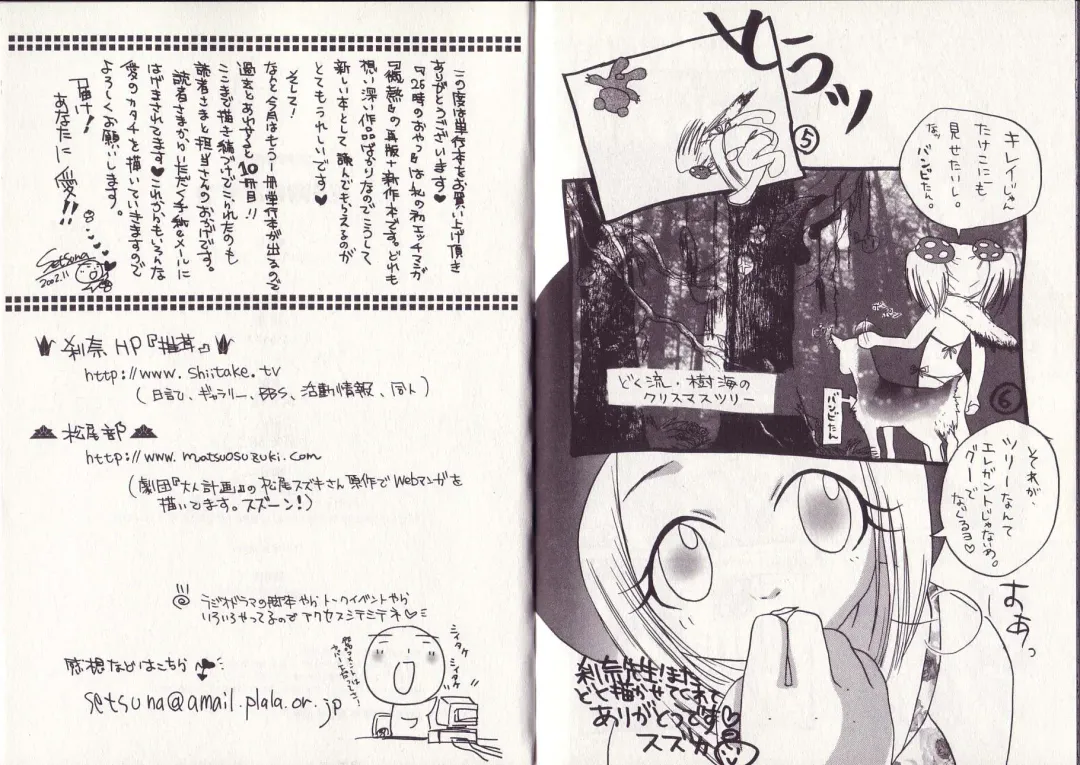 とうッ
⑤
キレイじゃん
たけこにも
見せたいし。
なッバンビたん。
どく流・樹海の
クリスマスツリー
バンビたん
⑥
それが、
ツリーなんて
エレガントじゃないわ。
グーで
なぐるヨ♡
はぁっ
刹奈先生!また
どく描かせてくれて
ありがとうです♡
スズカ
この度は単行本をお買い上げ頂き
ありがとうございます♥
『26時のおやつ』は私の初エッチマンガ
の再版+新作本です。どれも
想い深い作品ばかりなのでこうして、
新しい本として読んでもらえるのが
とてもうれしいです♥
そして!
なんと今月はもう一冊単行本が出るので
過去とあわせると10冊目!!
ここまで描き続けてこれたのも
読者さまと担当さんのおかげです。
読者さまからいただく手紙やメールに
はげまされてます♥これからもいろんな
愛のカタチを描いていきますので
よろしくお願いします。
届け!
あなたに愛!!
Setsuna
2002.11
刹奈HP『椎茸』
http://www.shiitake.tv
(日記、ギャラリー、BBS、活動情報、同人)
松尾部
http://www.matsuosuzuki.com
(劇団『大人計画』の松尾スズキさん原作でWebマンガを
描いてます。スズーン!)
ラジオドラマの脚本やらトークイベントやら
いろいろやってるのでアクセスシテミテネ♡
シイタケ
シイタケ
感想などはこちら
setsuna@amail.plala.or.jp